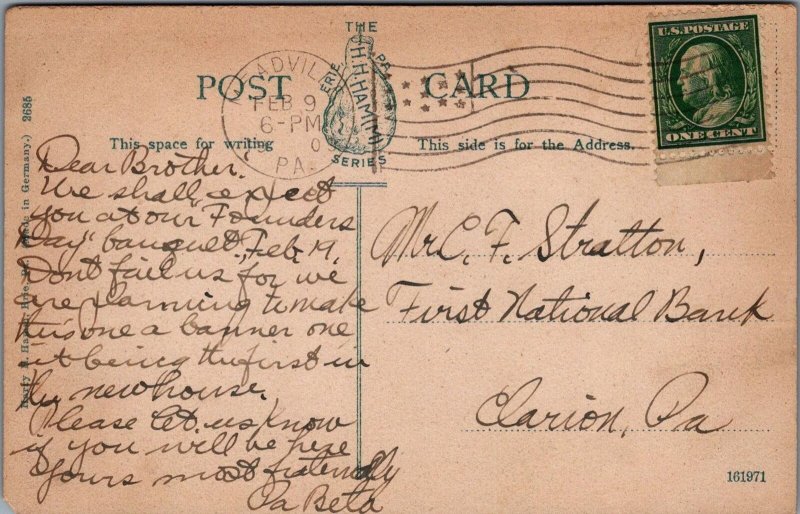 THE
ERIE PA.
H.H. HAMM
SERIES
POST CARD
MEADVILLE
FEB 9
6-PM
PA.
U.S. POSTAGE
ONE CENT
This space for writing
This side is for the Address.
Dear Brother.
We shall expect
you at our "Founders
Day" banquet, Feb. 19.
Dont fail us for we
are planning to make
this one a banner one
it being the first in
the new house.
Please let us know
if you will be here
Yours most fraternally
Pa Beta
Mr. C. F. Stratton,
First National Bank
Clarion, Pa
161971
in Germany.) 2685